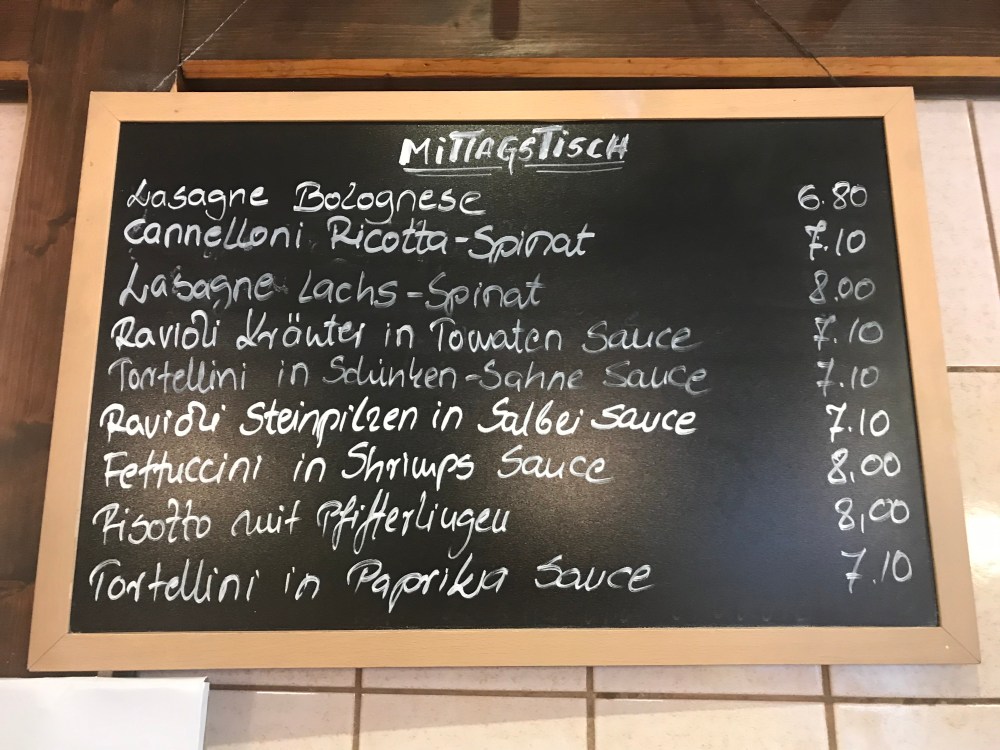 MITTAGSTISCH
Lasagne Bolognese 6.80
Cannelloni Ricotta-Spinat 7.10
Lasagne Lachs-Spinat 8.00
Ravioli Kräuter in Tomaten Sauce 7.10
Tortellini in Schinken-Sahne Sauce 7.10
Ravioli Steinpilzen in Salbei Sauce 7.10
Fettuccini in Shrimps Sauce 8,00
Risotto mit Pfifferlingen 8,00
Tortellini in Paprika Sauce 7.10